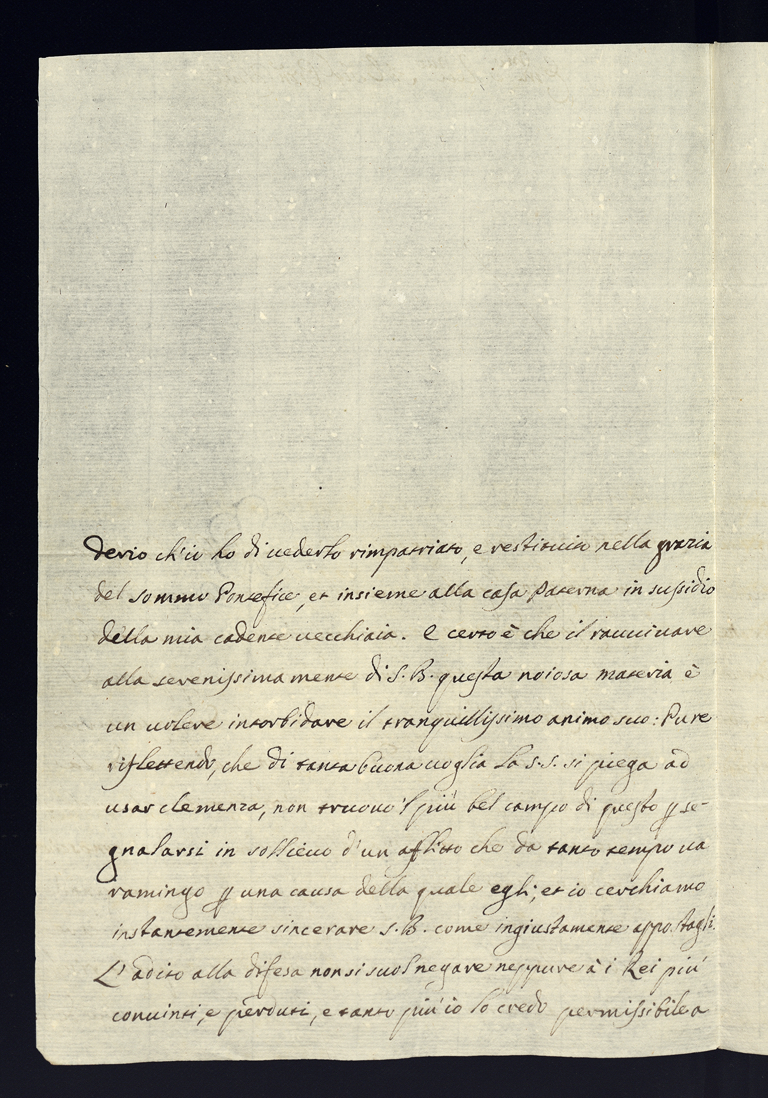 derio ch'io ho di uederlo rimpatriato, e restituito nella grazia
del sommo Pontefice, et insieme alla casa Paterna in sussidio
della mia cadente uecchiaia. E certo è che il rauuiuare
alla serenissima mente di S. B. questa noiosa materia è
un uolere intorbidare il tranquillissimo animo suo: Pure
riflettendo, che di tanta buona uoglia La S.S. si piega ad
usar clemenza, non truouo 'l più bel campo di questo ꝑ se-
gnalarsi in sollieuo d'un afflitto che da tanto tempo ua
ramingo ꝑ una causa della quale egli, et io cerchiamo
instantemente sincerare S. B. come ingiustamente appostagli.
L'adito alla difesa non si suol negare neppure à i Rei più
conuinti, e perduti, e tanto più io lo credo permissibile a